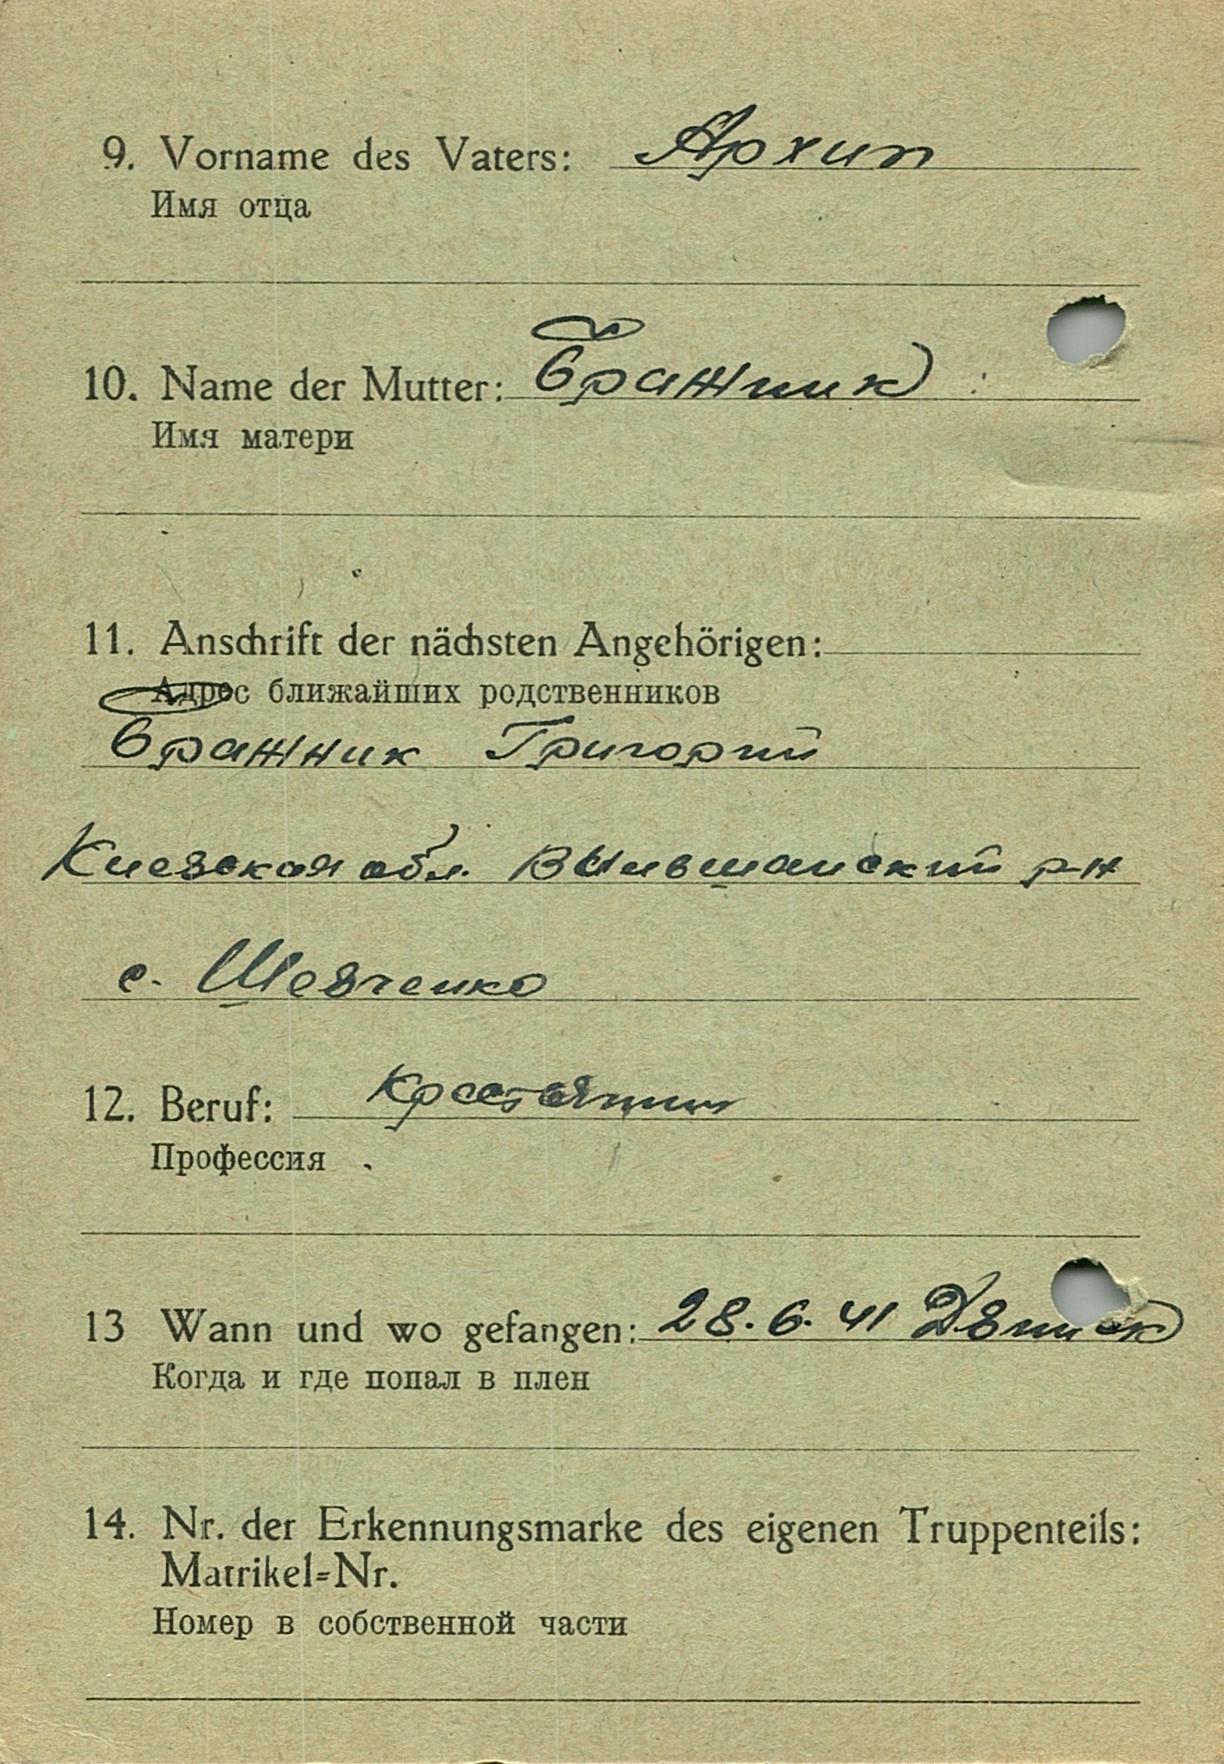 9. Vorname des Vaters: Архип
Имя отца
10. Name der Mutter: Бражник
Имя матери
11. Anschrift der nächsten Angehörigen:
Адрес ближайших родственников
Бражник Григорий
Киевская обл. р-н
с. Шевченко
12. Beruf: Крестьянин
Профессия
13 Wann und wo gefangen: 28.6.41 Двинск
Когда и где попал в плен
14. Nr. der Erkennungsmarke des eigenen Truppenteils:
Matrikel=Nr.
Номер в собственной части